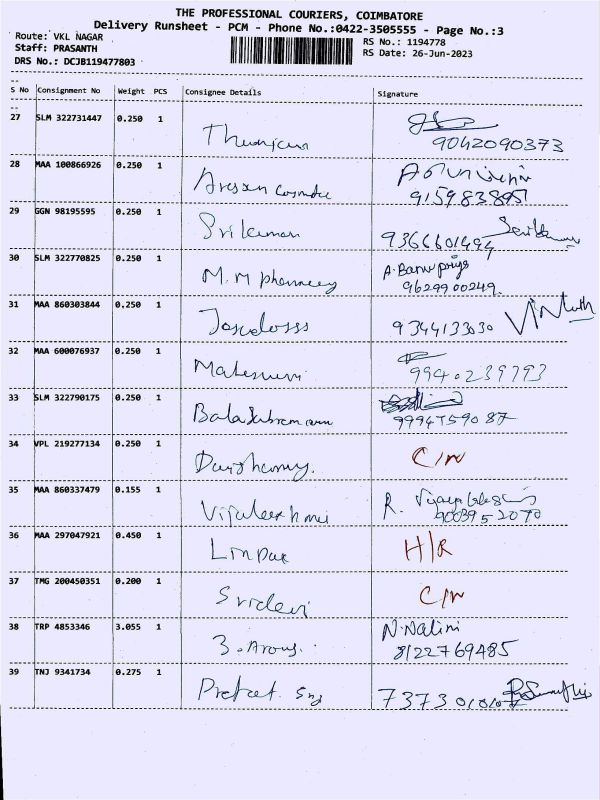 THE PROFESSIONAL COURIERS, COIMBATORE
Delivery Runsheet - PCM - Phone No.:0422-3505555 - Page No.:3
Route: VKL NAGAR
RS No.: 1194778
Staff: PRASANTH
RS Date: 26-Jun-2023
DRS No.: DCJB119477803
S No Consignment No Weight PCS Consignee Details Signature
27 SLM 322731447 0.250 1
9042090373
28 MAA 100866926 0.250 1
29 GGN 98195595 0.250 1 Srikumar
9366601494
30 SLM 322770825 0.250 1 M.M pharmacy A.Banupriya
9629900249.
31 MAA 860303844 0.250 1 9344133030
32 MAA 600076937 0.250 1
9940239793
33 SLM 322790175 0.250 1 Balasubramanian
9994759087
34 VPL 219277134 0.250 1 C/N
35 MAA 860337479 0.155 1 R.
9003952070
36 MAA 297047921 0.450 1 H/R
37 TMG 200450351 0.200 1 Sridevi C/N
38 TRP 4853346 3.055 1 N.Nalini
8122769485
39 TNJ 9341734 0.275 1